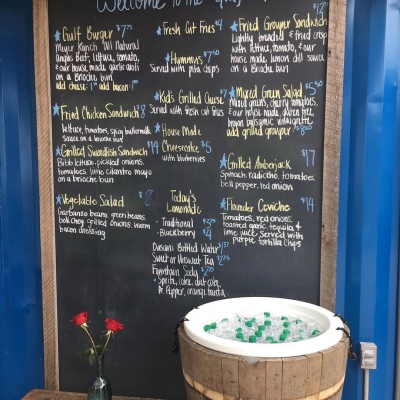 Welcome to the
Gulf Burger $7.75
Meyer Ranch All Natural
Angus Beef, lettuce, tomato,
& our house made garlic aioli
on a Brioche bun
add cheese 1.00 add bacon 1.00
Fried Chicken Sandwich $8
lettuce, tomatoes, spicy buttermilk
sauce on a brioche bun
Grilled Swordfish Sandwich $14
Bibb lettuce, pickled onions,
tomatoes, lime cilantro mayo
on a brioche bun
Vegetable Salad $8
Garbanzo beans, green beans,
bok choy, grilled onions, warm
bacon dressing
Fresh Cut Fries $4
Hummus $7.50
Served with pita chips
Kid's Grilled Cheese $7
Served with fresh cut fries
House Made
Cheesecake $5
with blueberries
Today's
Lemonade
- Traditional
- Blackberry
Dasani Bottled Water
Sweet or Unsweet Tea
Fountain Soda
- Sprite, coke, diet coke,
Dr. Pepper, orange fanta
Fried Grouper Sandwich $12
Lightly breaded & fried crisp
with lettuce, tomato, & our
house made lemon dill sauce
on a Brioche bun
Mixed Green Salad $5.50
Mixed greens, cherry tomatoes,
& our house made, gluten free,
brown balsamic vinaigrette
add grilled grouper $8.50
Grilled Amberjack $17
Spinach, radicchio, tomatoes,
bell pepper, red onions
Flounder Ceviche $14
Tomatoes, red onions,
roasted garlic, tequila &
lime juice. Served with
purple tortilla chips